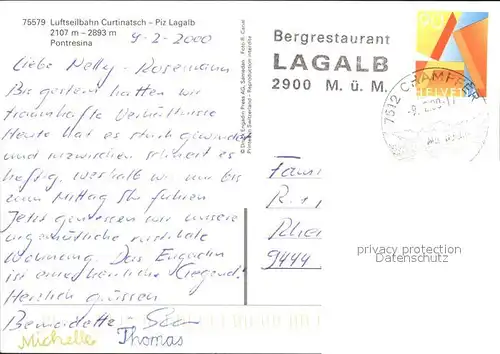 75579 Luftseilbahn Curtinatsch – Piz Lagalb
2107 m – 2893 m
Pontresina
9-2-2000
Liebe Nelly - Rosemann
Bis gestern hatten wir
traumhafte Verhältnisse
Heute hat es stark gewindet
und inzwischen schneit es
heftig, weshalb wir nur bis
zum Mittag Ski fuhren
Jetzt geniessen wir unsere
urgemütliche rustikale
Wohnung. Das Engadin
ist eine herrliche Gegend!
Herzlich grüssen
Bernadette
Michelle Thomas
Bergrestaurant
LAGALB
2900 M. ü. M.
90
HELVETIA
7512 CHAMPFÈR
Fam
R.
Rhei
9444
privacy protection
Datenschutz